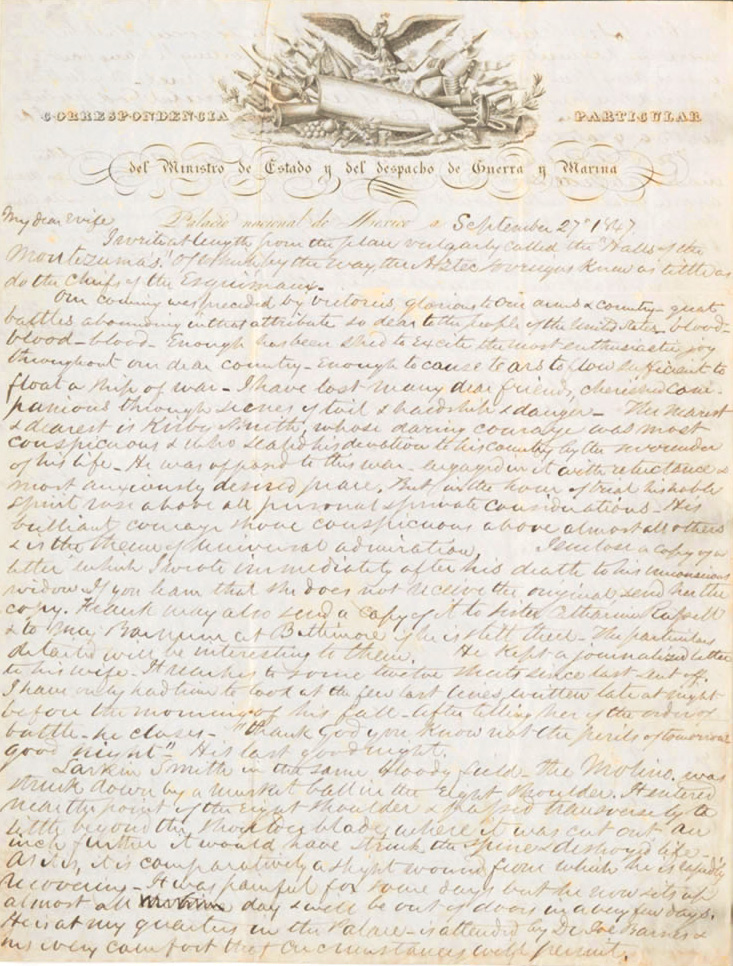 CORRESPONDENCIA PARTICULAR
del Ministro de Estado y del despacho de Guerra y Marina
Palacio nacional de Mexico a September 27th 1847.
My dear wife
I write at length from the place vulgarly called the "Halls of the
Montezumas." Of which by the way the Aztec Sovereigns knew as little as
do the Chiefs of the Esquimaux.
Our coming was preceded by victories, glorious to our arms & country - great
battles abounding in that attribute so dear to the people of the United States - blood -
blood - blood - Enough has been shed to excite the most enthusiastic joy
throughout our dear country - Enough to cause tears to flow sufficient to
float a ship of war - I have lost many dear friends, cherished com-
panions through scenes of toil & hardship & danger - The nearest
& dearest is Kirby Smith, whose daring courage was most
conspicuous & who sealed his devotion to his country by the surrender
of his life - He was opposed to this war - engaged in it with reluctance &
most anxiously desired peace. But in the hour of trial his noble
spirit rose above all personal & private considerations - His
brilliant courage shone conspicuous above almost all others
& is the theme of universal admiration. I enclose a copy of a
letter which I wrote immediately after his death to his unconscious
widow. If you learn that she does not receive the original send her the
copy. Frank may also send a copy of it to sister Catharine Russell
& to at Baltimore if he is still there - The particulars
detailed will be interesting to them. He kept a journalized letter
to his wife - It reaches to some twelve sheets since last sent off.
I have only had time to look at the few last lines, written late at night
before the morning of his fall - after telling her of the order of
battle - he closes - "Thank God you know not the perils of tomorrow
good night" - His last good night.
Larkin Smith in the same bloody field - the Molino, was
struck down by a musket ball in the right shoulder. It entered
near the point of the right shoulder & passed transversely to a
little beyond the shoulder blade, where it was cut out - an
inch further it would have struck the spine & destroyed life -
As it is, it is comparatively a slight wound from which he is rapidly
recovering - It was painful for some days but he now sits up
almost all day & will be out of doors in a very few days.
He is at my quarters in the Palace - is attended by Dr Joe Barnes &
has every comfort that circumstances will permit.